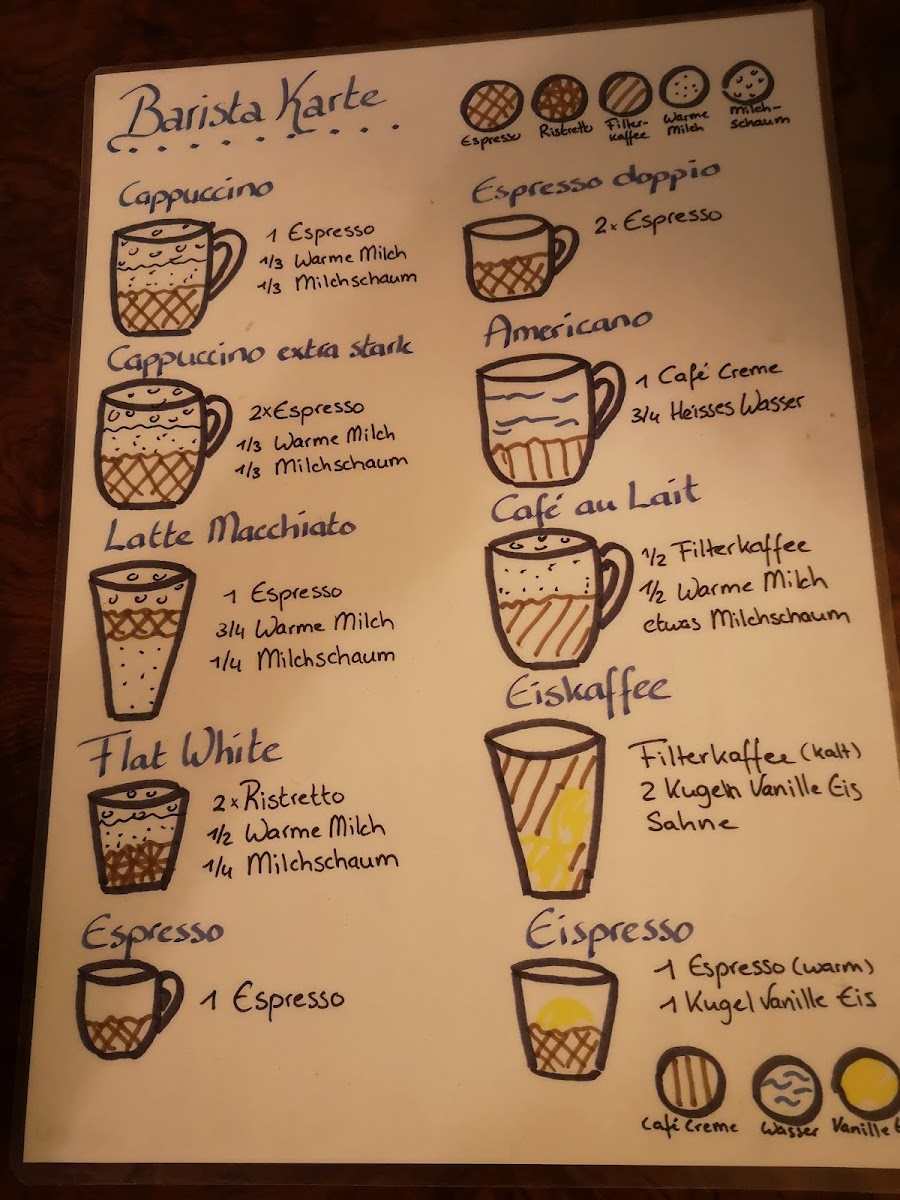 Barista Karte
Espresso
Ristretto
Filter-
kaffee
Warme
Milch
Milch-
schaum
Cappuccino
1 Espresso
1/3 Warme Milch
1/3 Milchschaum
Cappuccino extra stark
2x Espresso
1/3 Warme Milch
1/3 Milchschaum
Latte Macchiato
1 Espresso
3/4 Warme Milch
1/4 Milchschaum
Flat White
2x Ristretto
1/2 Warme Milch
1/4 Milchschaum
Espresso
1 Espresso
Espresso doppio
2x Espresso
Americano
1 Café Creme
3/4 Heisses Wasser
Café au Lait
1/2 Filterkaffee
1/2 Warme Milch
etwas Milchschaum
Eiskaffee
Filterkaffee (kalt)
2 Kugeln Vanille Eis
Sahne
Eispresso
1 Espresso (warm)
1 Kugel Vanille Eis
Café Creme
Wasser
Vanille